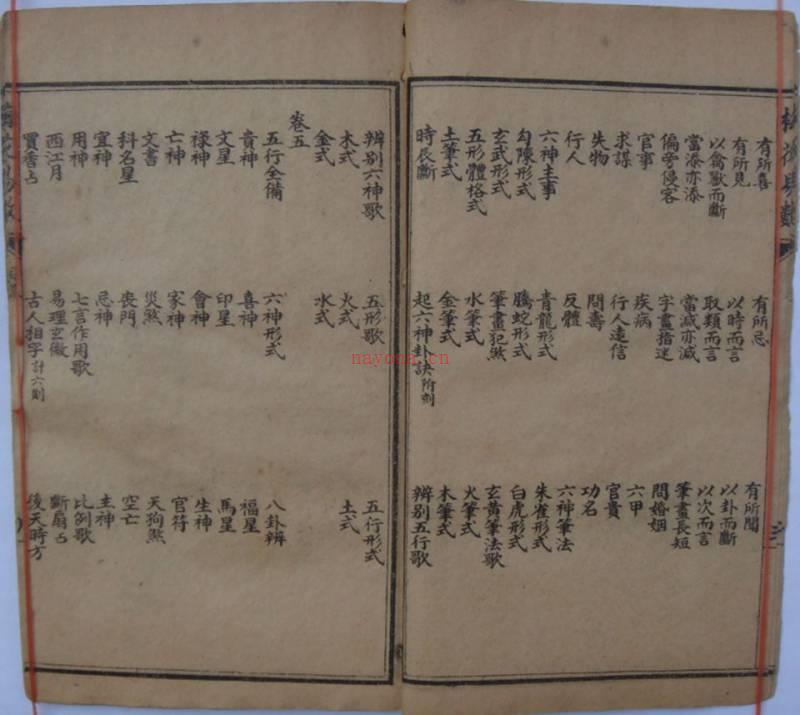 有所喜 有所忌 有所聞
有所見 以時而言 以卦而斷
以禽獸而斷 取類而言 以次而言
當添亦添 當減亦減 筆畫長短
偏旁侵客 字畫指迷 問婚姻
官事 疾病 六甲
求謀 行人遠信 官貴
失物 問壽 功名
行人 反體 六神筆法
六神主事 青龍形式 朱雀形式
勾陳形式 騰蛇形式 白虎形式
玄武形式 筆畫犯煞 玄黃筆法歌
五形體格式 水筆式 火筆式
土筆式 金筆式 木筆式
時辰斷 起六神卦訣附刻 辨别五行歌
辨别六神歌 五形歌 五行形式
木式 火式 土式
金式 水式
卷五
五行全備 六神形式 八卦辨
貴神 喜神 福星
文星 印星 馬星
祿神 會神 生神
亡神 家神 官符
文書 災煞 天狗煞
科名星 喪門 空亡
宜神 忌神 主神
用神 七言作用歌 比例歌
西江月 易理玄微 斷扇占
買香占 古人相字計六則 後天時方
nayona.cn